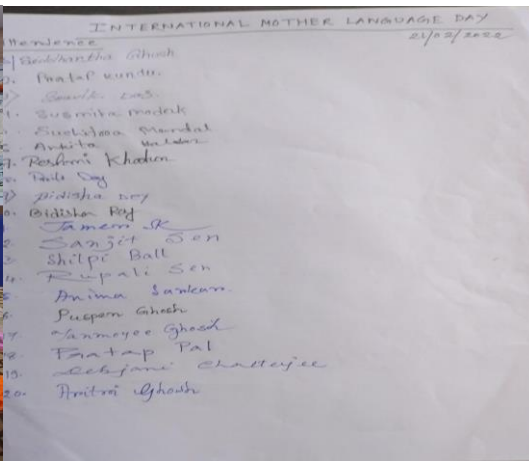 INTERNATIONAL MOTHER LANGUAGE DAY
21/02/2022
ttendence
Siddhantha Ghosh
Pratap kundu.
Souvik Das.
Susmita modak
Suchitma Mondal
Ankita Halder
7. Reshmi Khatun
Day
Bidisha Dey
0. Bidisha Roy
Jamem SK
2. Sanjit Sen
3. Shilpi Ball
4. Rupali Sen
5. Anima Sarkar
6. Puspen Ghosh
17. Tanmoyee Ghosh
18. Pratap Pal
19. Debjani Chatterjee
20. Aritri Ghosh